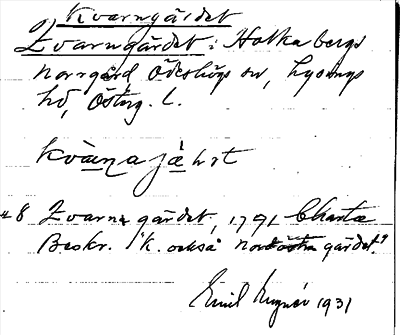 Kvarngärdet
Qvarngärdet: Holkabergs
Norrgård Ödeshögs sn, Lysings
hd, Östrg. l.
kvàṇa jæ̀ṛt
48 Qvarne gärdet, 1791 Charta
Beskr. "K. också nordöstra gärdet."
Emil 1931